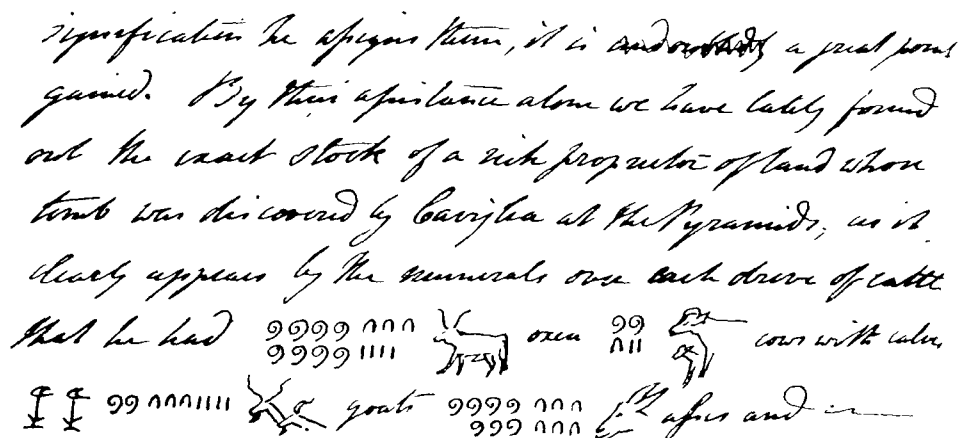 signification he assigns them, it is a great point
gained. By their assistance alone we have lately found
out the exact stock of a rich proprietor of land whose
tomb was discovered by Caviglia at the Pyramids; as it
clearly appears by the numerals over each drove of cattle
that he had 𓍢𓍢𓍢𓍢𓍢𓍢𓍢𓍢𓎆𓎆𓎆𓏺𓏺𓏺𓏺 oxen 𓍢𓍢𓎆𓏺𓏺 cows with calves
𓆼𓆼𓍢𓍢𓎆𓎆𓎆𓏺𓏺𓏺𓏺 goats 𓍢𓍢𓍢𓍢𓍢𓍢𓍢𓎆𓎆𓎆𓎆𓎆𓎆 asses and